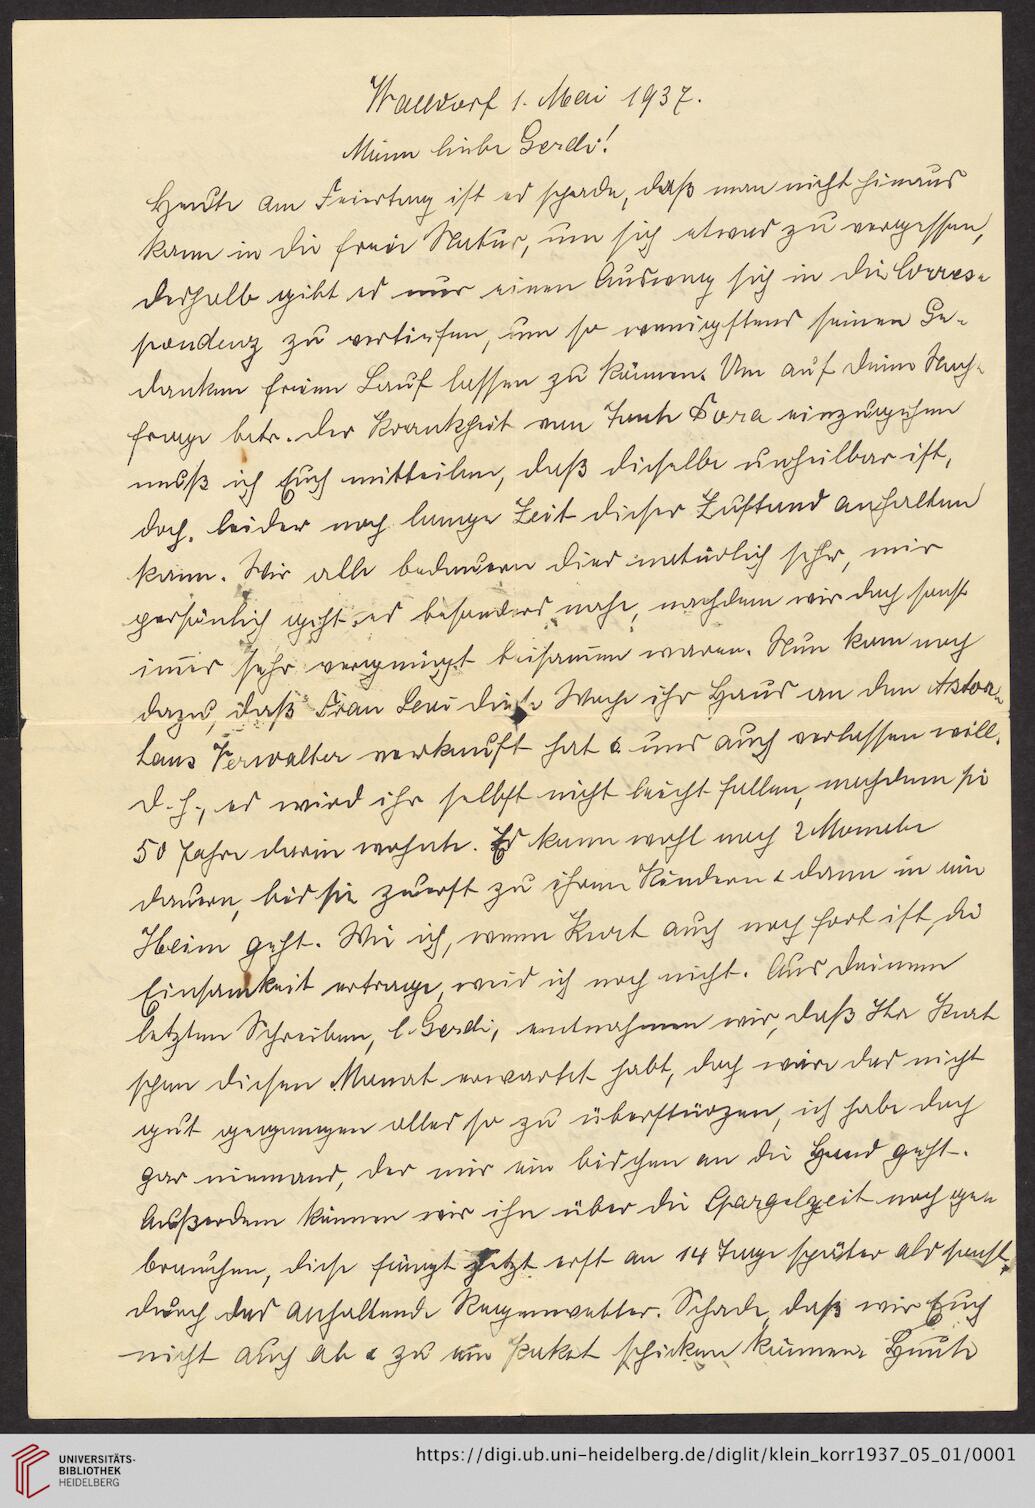 Walldorf 1. Mai 1937.
Meine liebe Gerdi!
Heute am Feiertag ist es schade, daß man nicht hinaus
kann in die freie Natur, um sich etwas zu vergessen,
deshalb gibt es nur einen Ausweg sich in die Corres-
pondenz zu vertiefen, um so wenigstens seinen Ge-
danken freien Lauf lassen zu können. Um auf deine Nach-
frage betr. der Krankheit von Tante Dora einzugehen
muß ich Euch mitteilen, daß dieselbe unheilbar ist,
doch leider noch lange Zeit dieser Zustand anhalten
kann. Wir alle bedauern dies natürlich sehr, mir
persönlich geht es besonders nahe, nachdem wir doch sonst
immer sehr vergnügt beisammen waren. Nun kam noch
dazu, daß Frau Levi diese Woche ihr Haus an den Astor-
haus Verwalter verkauft hat & uns auch verlassen will.
d. h., es wird ihr selbst nicht leicht fallen, nachdem sie
50 Jahre darin wohnte. Es kann wohl noch 2 Monate
dauern, bis sie zuerst zu ihren Kindern & dann in ein
Heim geht. Wie ich, wenn Kurt auch noch fort ist, die
Einsamkeit ertrage, weis ich noch nicht. Aus deinem
letzten Schreiben, l. Gerdi, entnahmen wir, daß Ihr Kurt
schon diesen Monat erwartet habt, doch wäre das nicht
gut gegangen alles so zu überstürzen, ich habe doch
gar niemand, der mir ein bischen an die Hand geht.
Außerdem können wir ihn über die Spargelzeit noch ge-
brauchen, diese fängt jetzt erst an 14 Tage später als sonst,
durch das anhaltende Regenwetter. Schade, daß wir Euch
nicht auch ab & zu ein Paket schicken können. Heute
UNIVERSITÄTS-
BIBLIOTHEK
HEIDELBERG
https://digi.ub.uni-heidelberg.de/diglit/klein_korr1937_05_01/0001